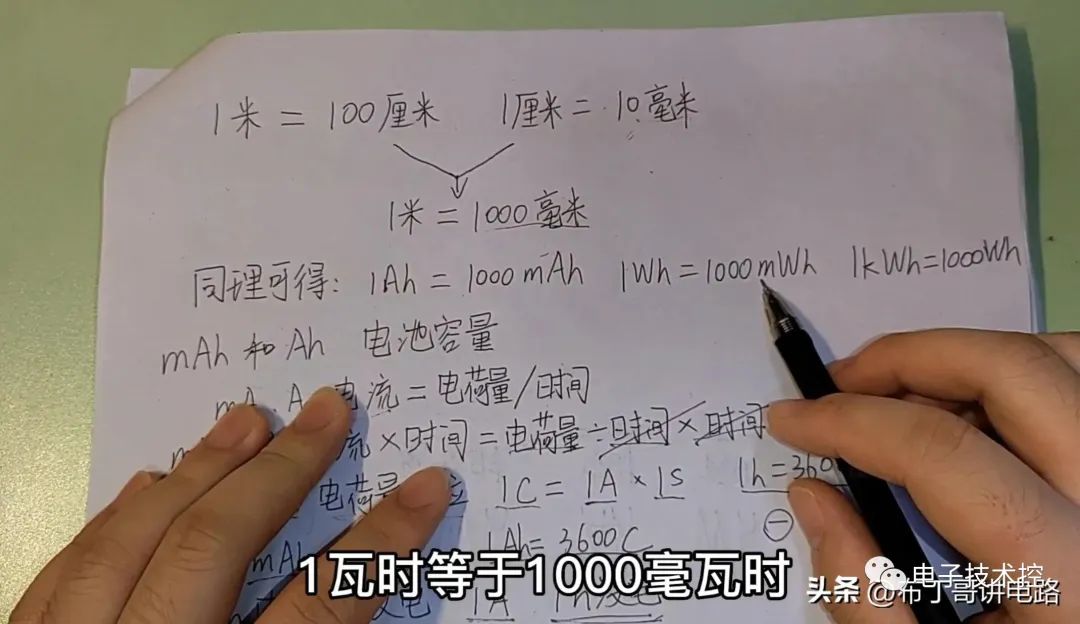 1米 = 100厘米 1厘米 = 10毫米
1米 = 1000毫米
同理可得: 1Ah = 1000mAh 1Wh = 1000mWh 1kWh=1000Wh
mAh 和 Ah 电池容量
mA A 电流 = 电荷量/时间
流×时间 = 电荷量÷时间×时间
电荷量 1C = 1A × 1S 1h=360
mAh 1Ah= 3600C
1瓦时等于1000毫瓦时
电 1A
电子技术控
头条 @布丁哥讲电路